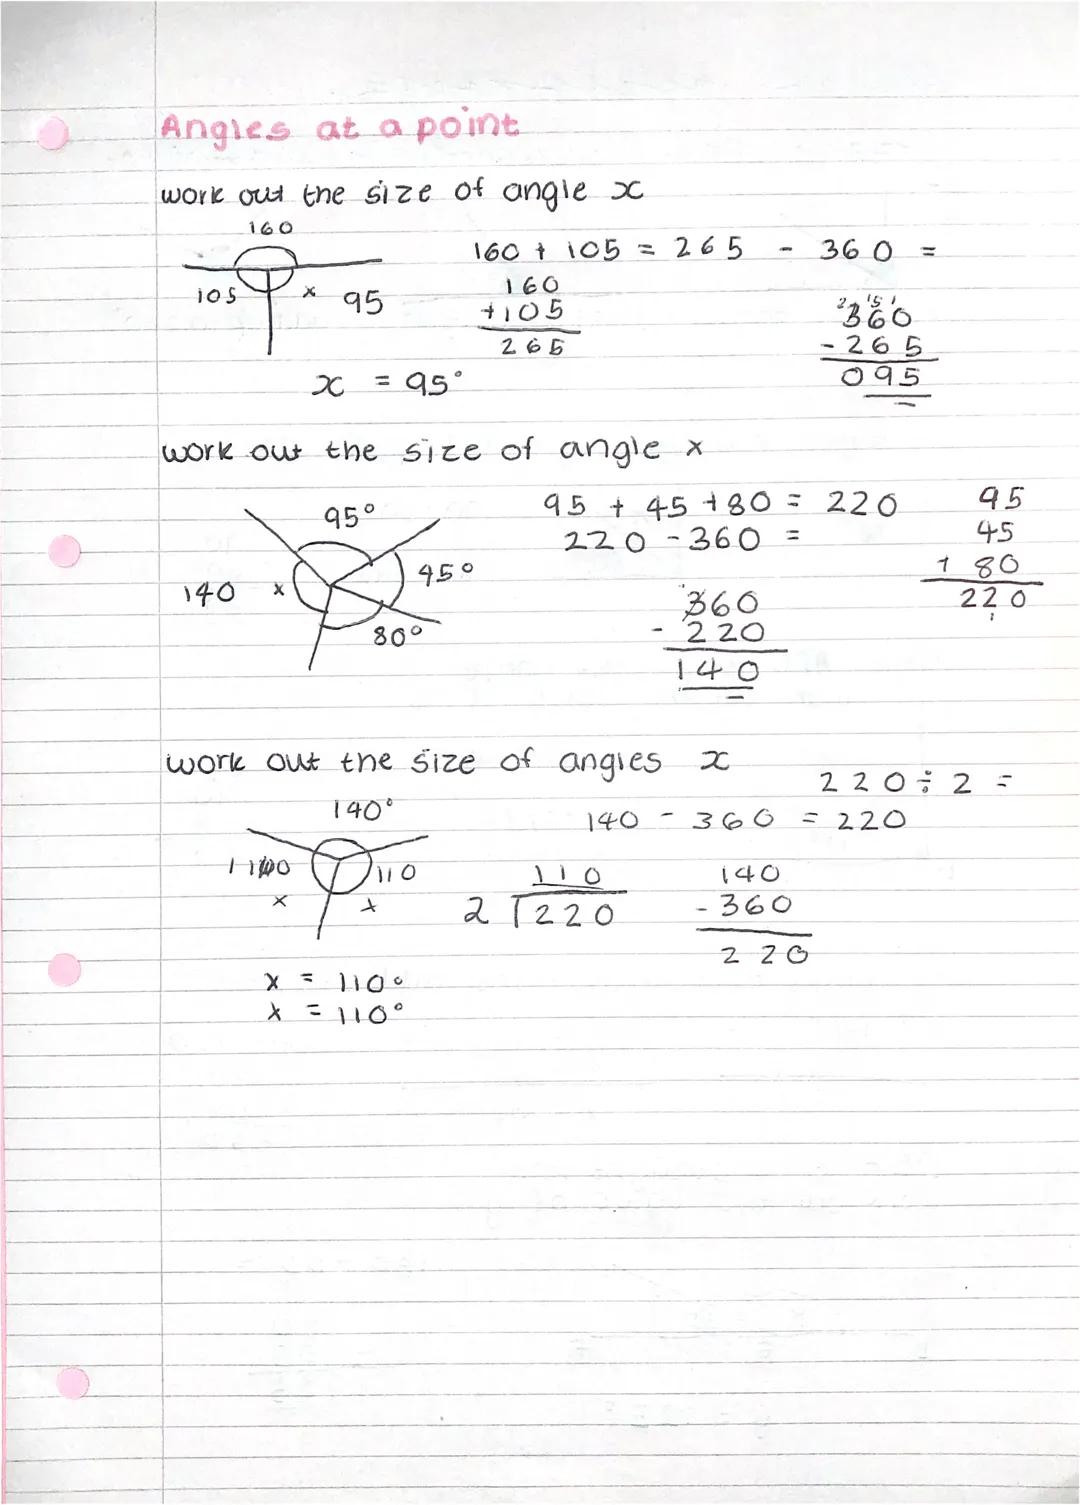 Angles at a point
work out the size of angle x
160
160 + 105 = 265 - 360 =
105 x 95
160
+105
265
2 15 1
360
- 265
095
x = 95°
work out the size of angle x
95°
45°
80°
140 x
95 + 45 + 80 = 220
220 - 360 =
95
45
+ 80
220
1
360
- 220
140
work out the size of angles x
220 ÷ 2 =
140°
140 - 360 = 220
110
x x
110
2 220
140
- 360
220
x = 110°
x = 110°